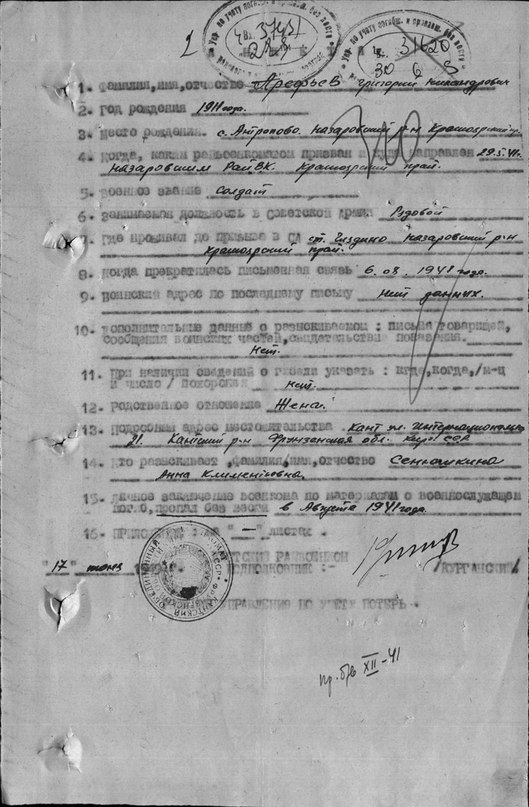 2
Упр. по учету погибш. и пропавш. без вести
31620
30 6 8
1. Фамилия, имя, отчество Арефьев Григорий Никандрович
2. Год рождения 1911 года.
3. Место рождения. с. Антропово. Назаровский р-н Красноярский
4. Когда, каким райвоенкоматом призван и куда направлен
Назаровским РайВК. Красноярский край.
5. Военное звание Солдат
6. Занимаемая должность в Советской Армии Рядовой
7. Где проживал до призыва в СА ст. Глядино Назаровский р-н
Красноярский край.
8. Когда прекратилась письменная связь 6.08.1941 года.
9. Воинский адрес по последнему письму Нет данных.
10. Дополнительные данные о разыскиваемом: письма товарищей,
сообщения воинских частей, свидетельские показания.
Нет.
11. При наличии сведений о гибели указать: где, когда, /м-ц
и число / похоронен Нет.
12. Родственное отношение Жена.
13. Подробный адрес местожительства Кант ул. Интернациональ
21. Кантский р-н Фрунзенская обл. Кирг ССР
14. Кто разыскивает, фамилия, имя, отчество Сенюшкина
Анна Климентовна.
15. Личное заключение военкома по материалам о военнослужащем
погиб, пропал без вести в Августе 1941 года.
16. Приложение: на "—" листах.
"17" РАЙВОЕНКОМ
ПОДПОЛКОВНИК :- /КУРГАНСКИЙ
УПРАВЛЕНИЯ ПО УЧЕТУ ПОТЕРЬ.
пр. б/в XII-41